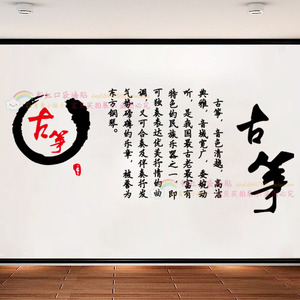 古筝
古筝，音色清越，高洁
典雅，音域宽广，委婉动
听，是我国最古老最富有
特色的民族乐器之一，即
可独奏表达优美抒情的曲
调，又可合奏及伴奏抒发
气势磅礴的乐章，被誉为
东方钢琴。
古筝